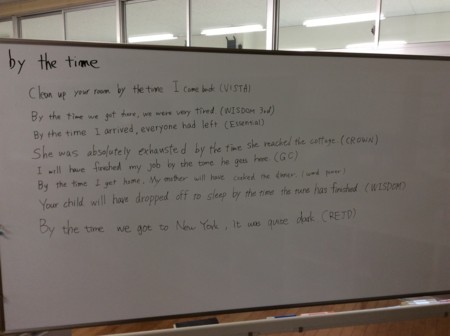 by the time
Clean up your room by the time I come back (VISTA)
By the time we got there, we were very tired. (WISDOM 3rd)
By the time I arrived, everyone had left (Essential)
She was absolutely exhausted by the time she reached the cottage. (CROWN)
I will have finished my job by the time he goes here (GC)
By the time I get home, My mother will have cooked the dinner. (word power)
Your child will have dropped off to sleep by the time the tune has finished. (WISDOM)
By the time we got to New York, it was quite dark. (REJD)